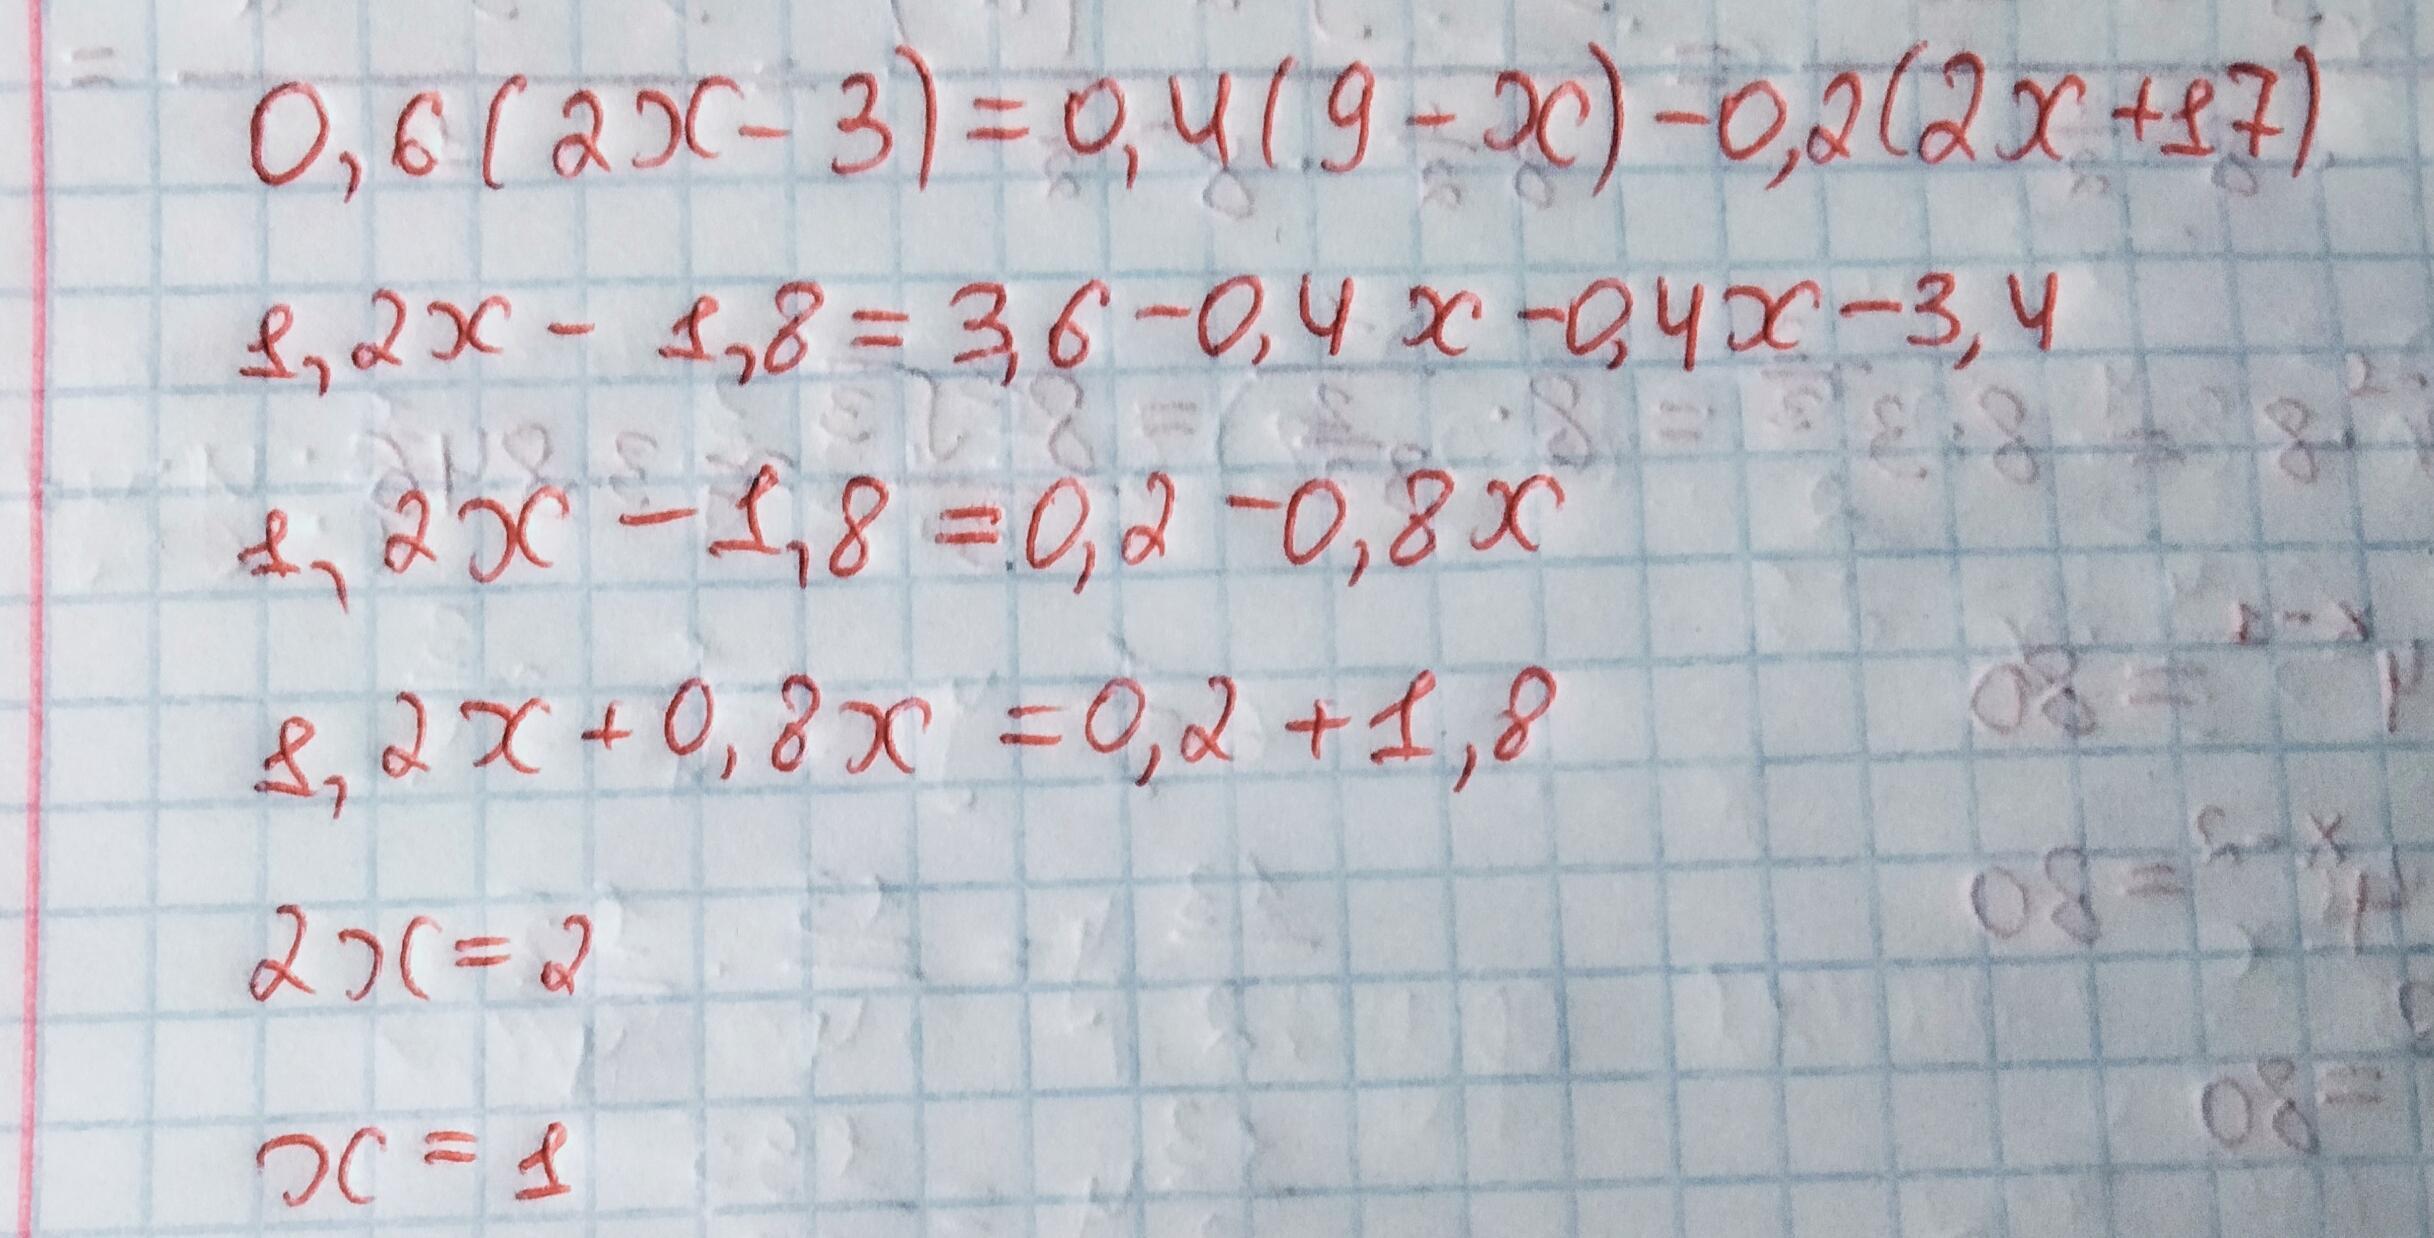 0,6(2x-3)=0,4(9-x)-0,2(2x+17)
1,2x-1,8=3,6-0,4x-0,4x-3,4
1,2x-1,8=0,2-0,8x
1,2x+0,8x=0,2+1,8
2x=2
x=1